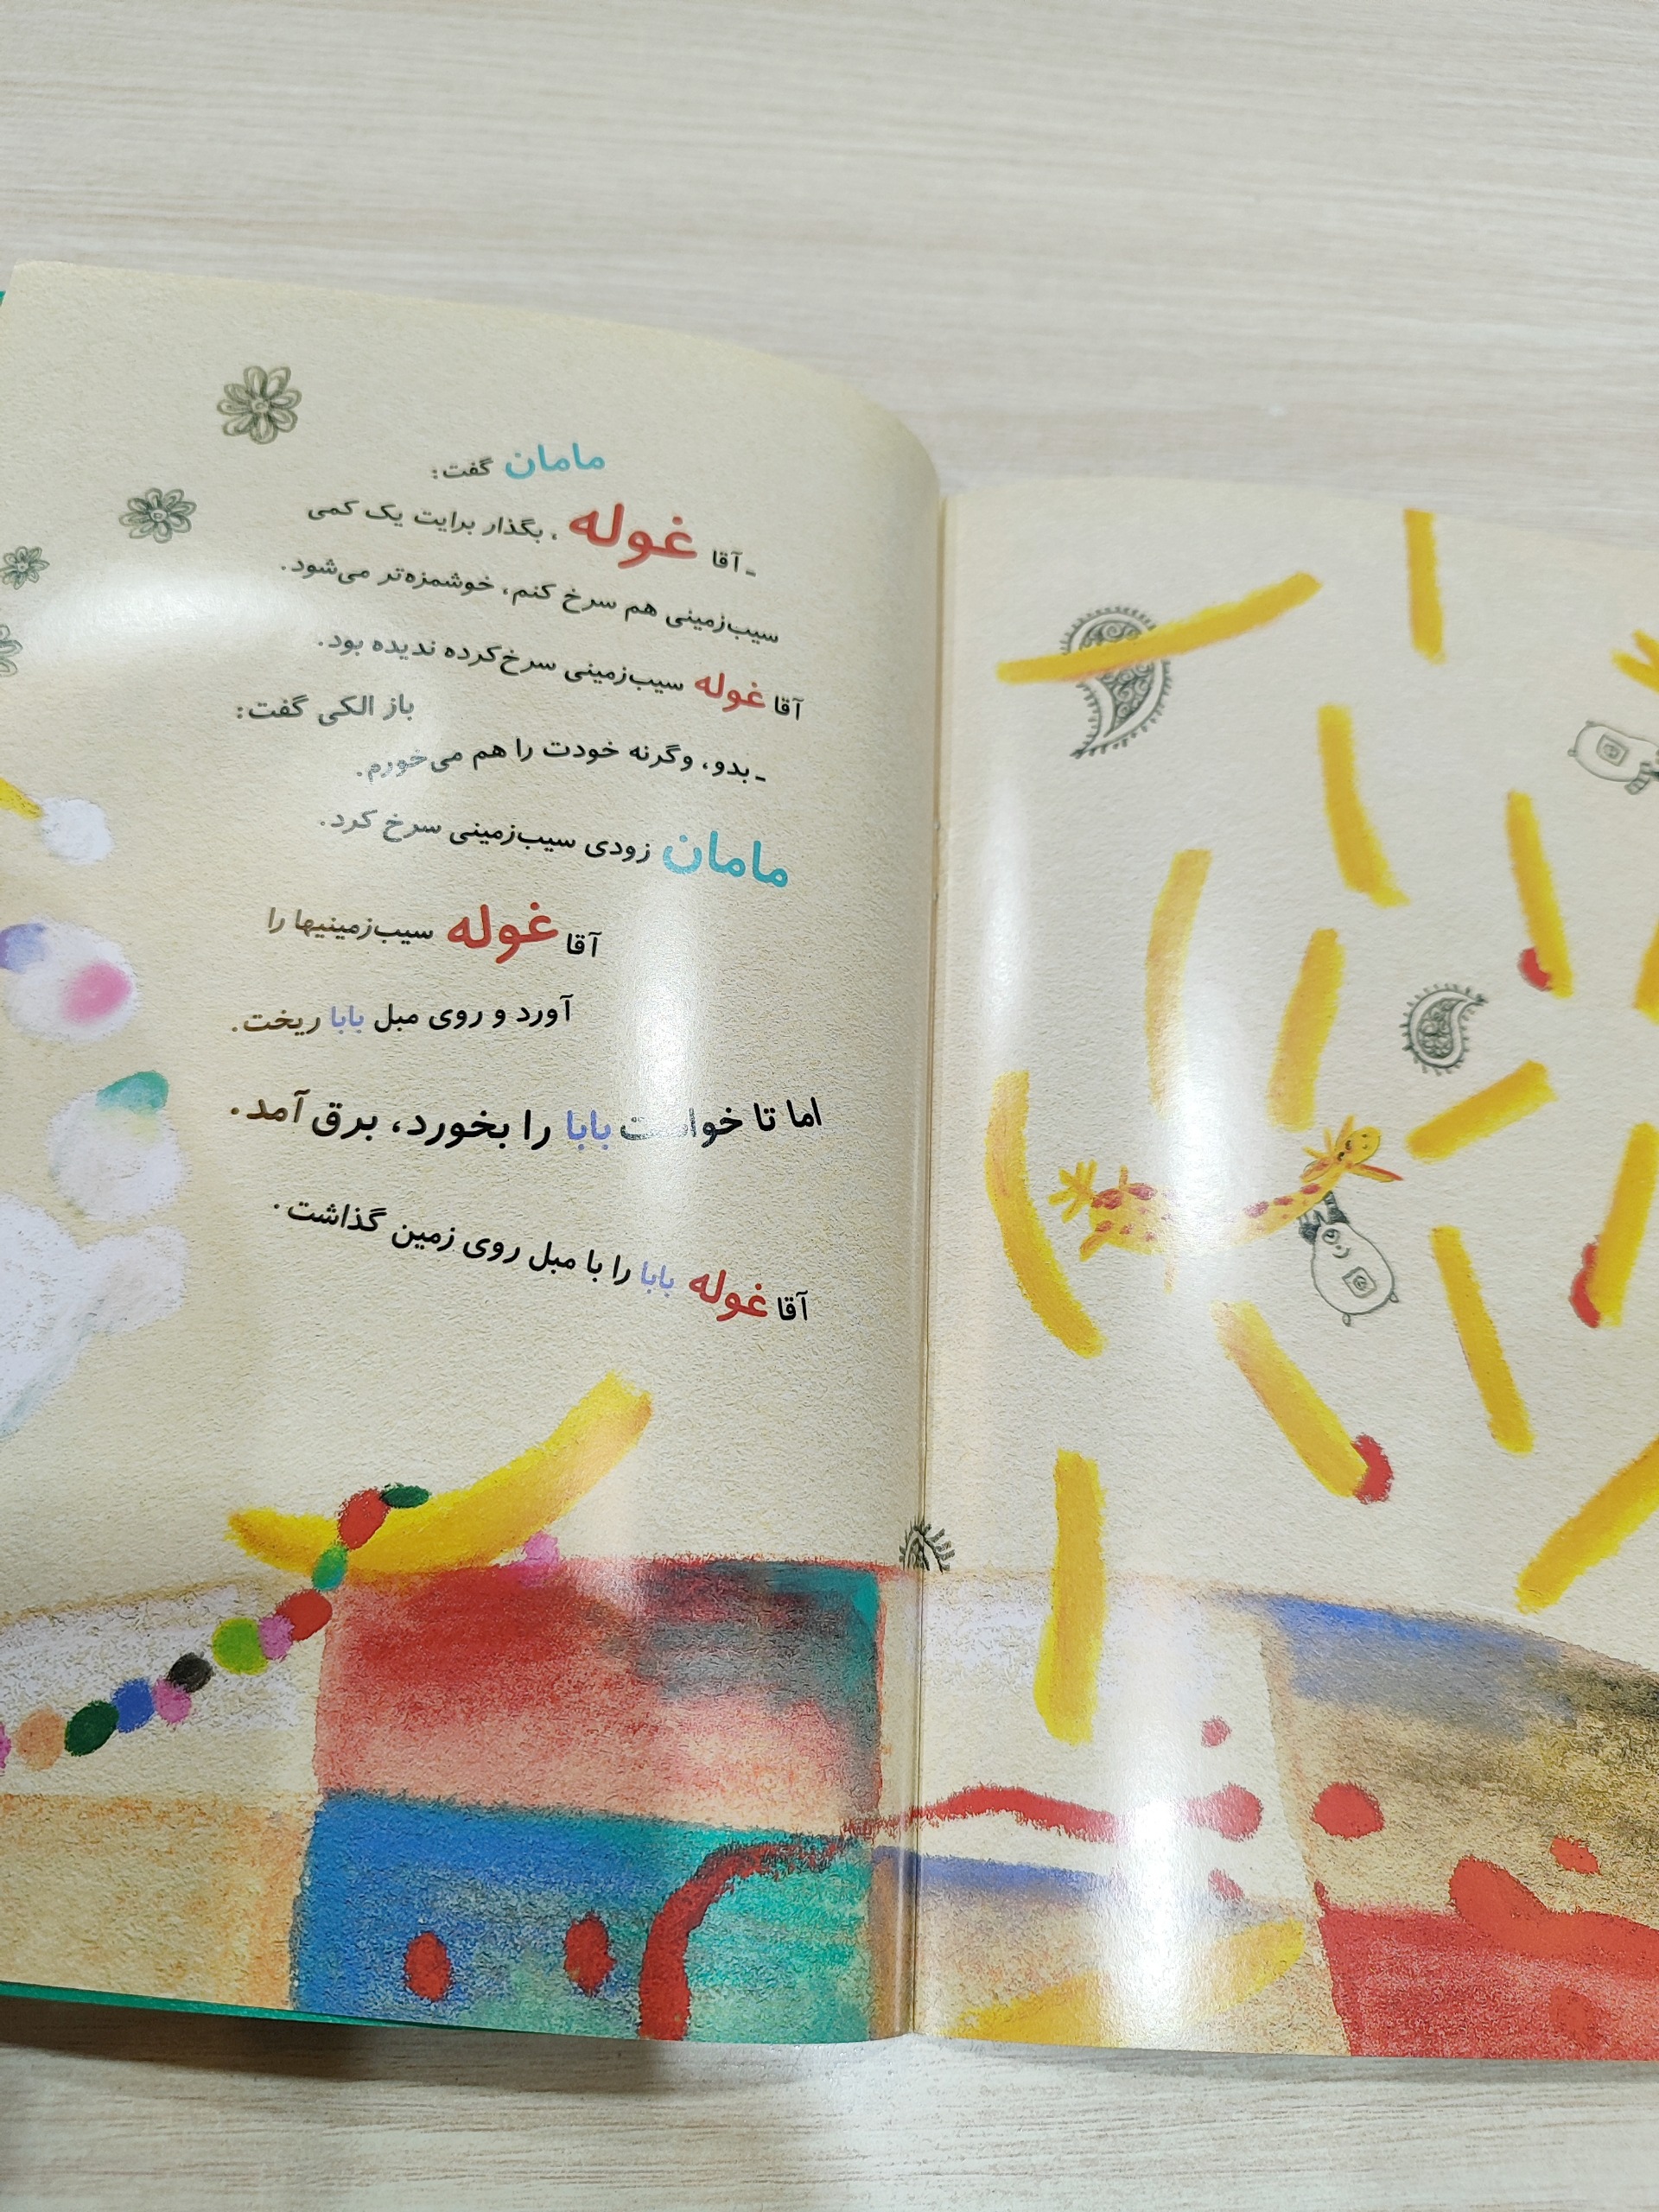 مامان گفت:
ـ آقا غوله، بگذار برایت یک کمی
سیب‌زمینی هم سرخ کنم، خوشمزه‌تر می‌شود.
آقا غوله سیب‌زمینی سرخ‌کرده ندیده بود.
باز الکی گفت:
ـ بدو، وگرنه خودت را هم می‌خورم.
مامان زودی سیب‌زمینی سرخ کرد.
آقا غوله سیب‌زمینیها را
آورد و روی مبل بابا ریخت.
اما تا خواست بابا را بخورد، برق آمد.
آقا غوله بابا را با مبل روی زمین گذاشت.